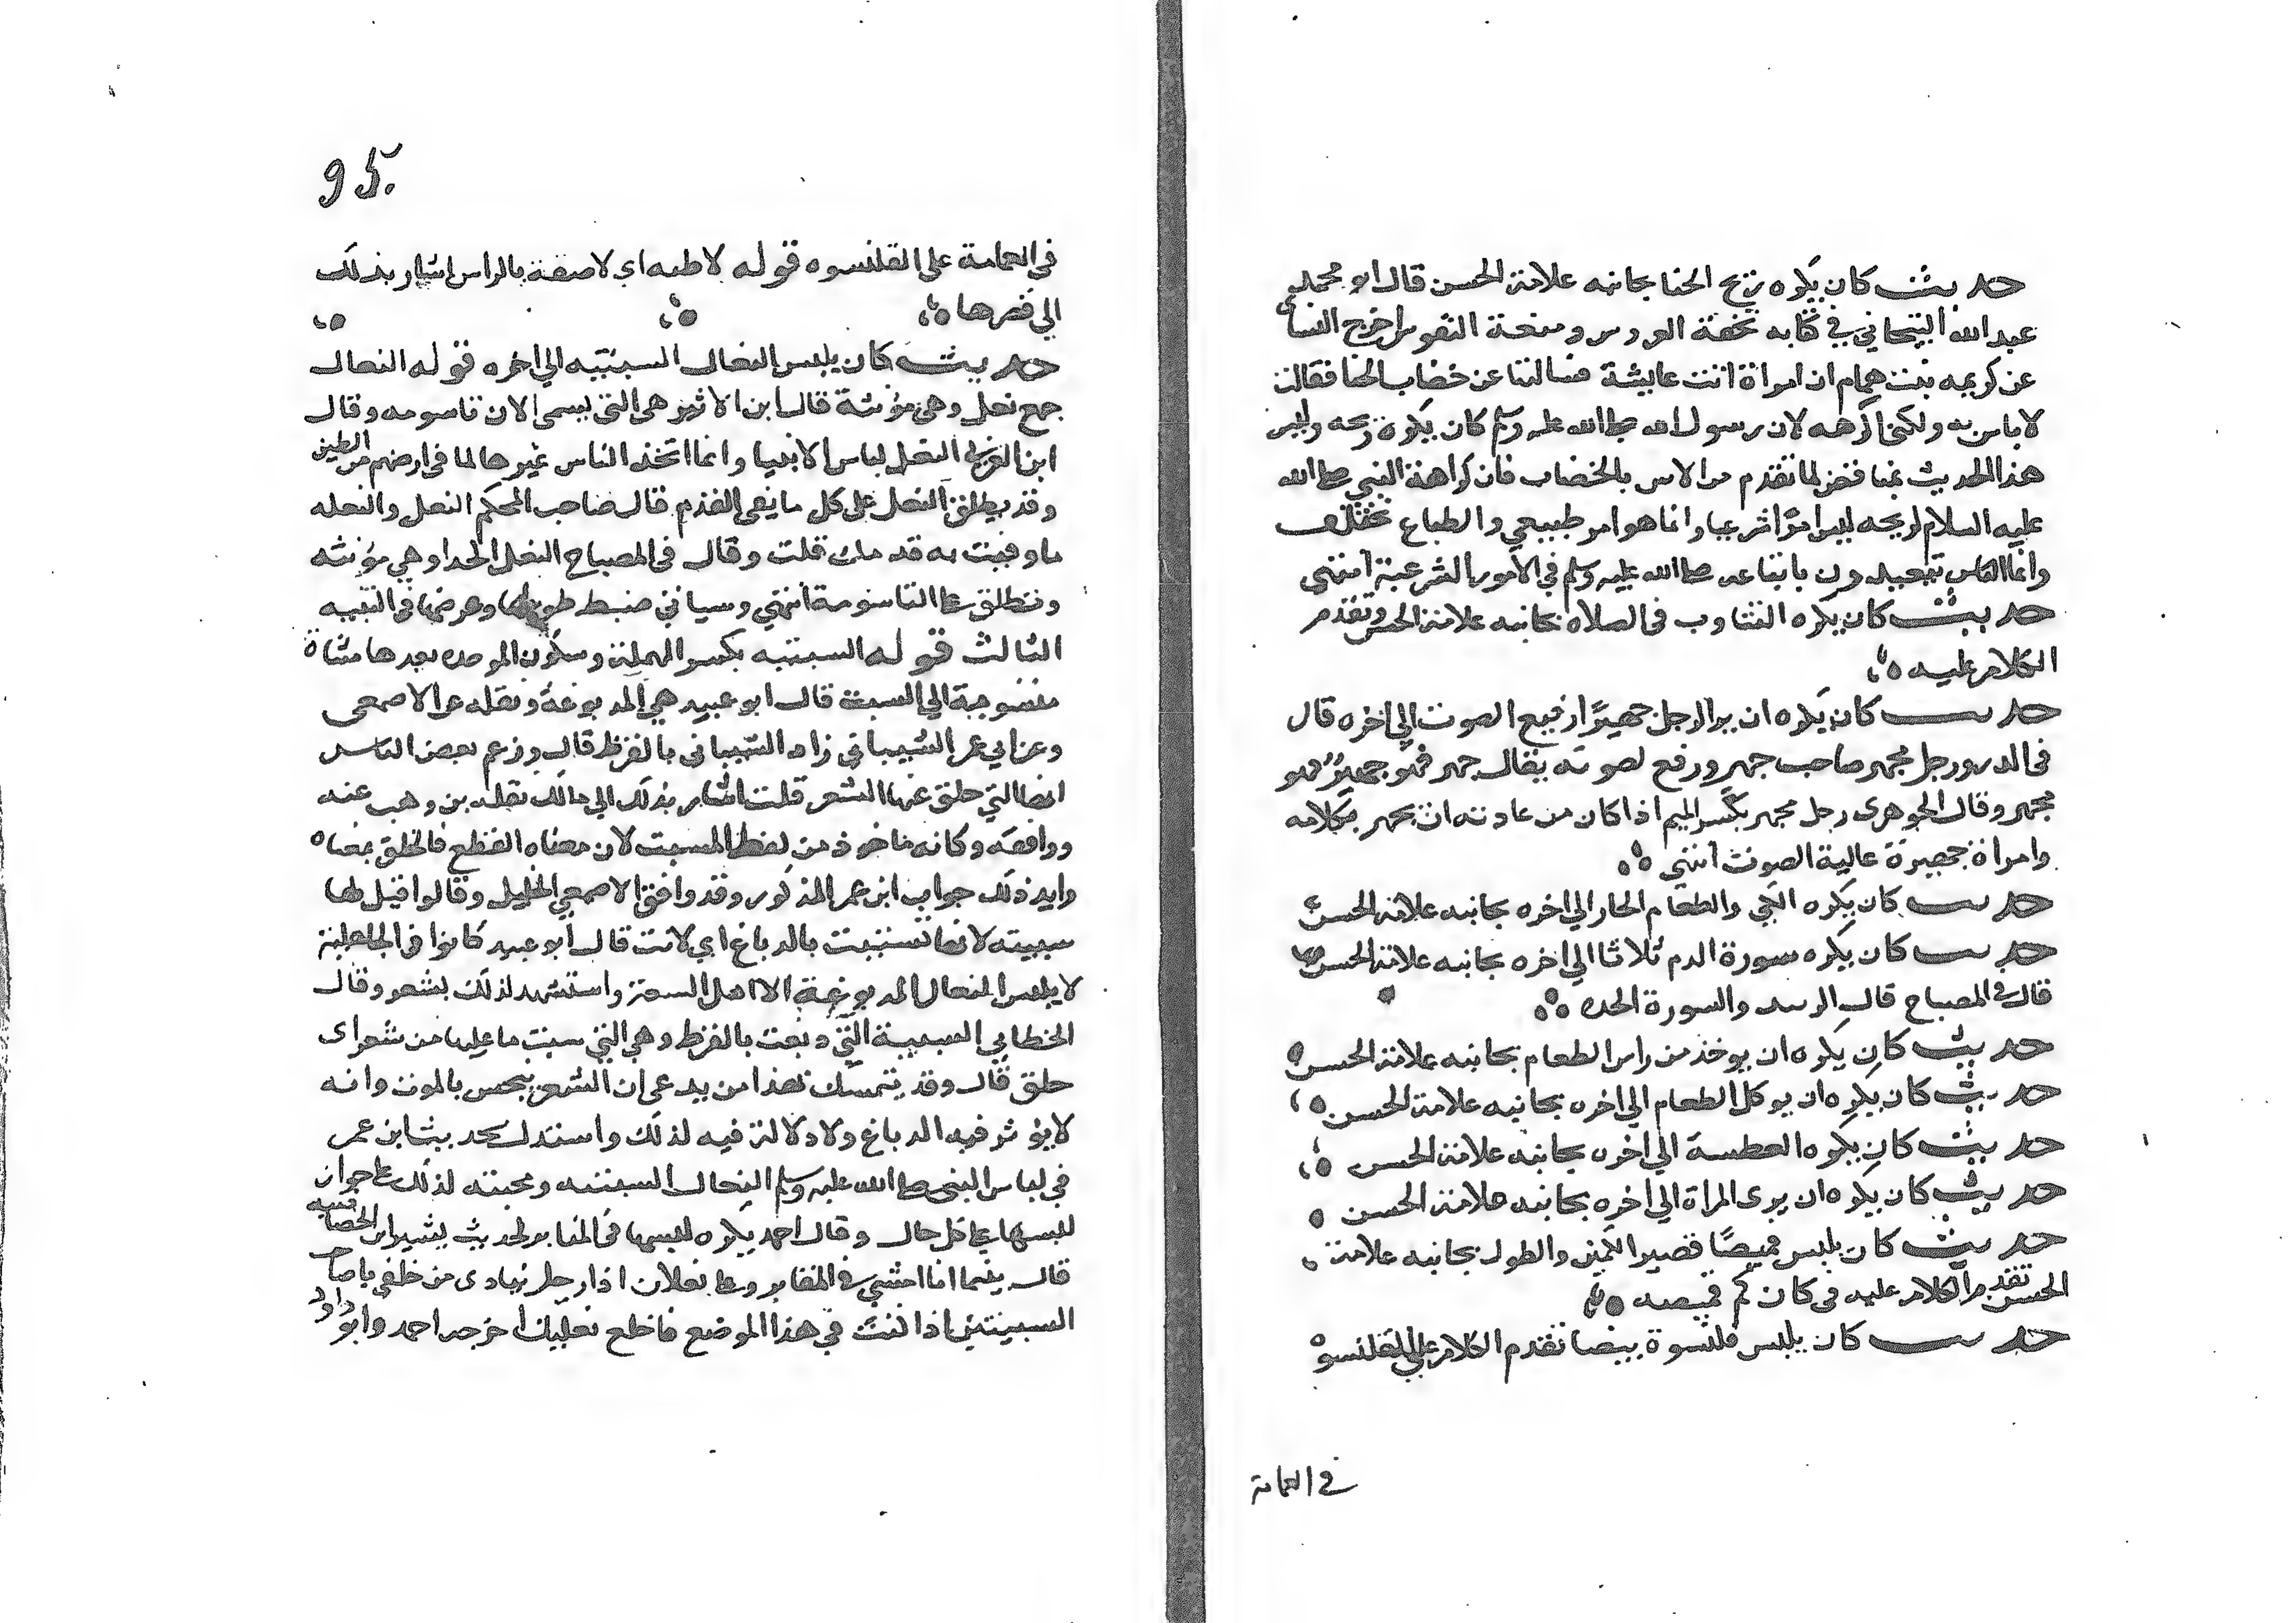 حديث كان يكره ريح الحنا بجانبه علامة الحسن قال ابو محمد
عبد الله التيجاني في كتابه تحفة العروس ومتعة النفوس اخرج النساي
عن كريمه بنت همام ان امراة اتت عايشة فسالتها عن خضاب الحنا فقالت
لا باس به ولكني اكرهه لان رسول الله صلى الله عليه وسلم كان يكره ريحه وليس
هذا الحديث بمناقض لما تقدم من الامر بالخضاب فان كراهة النبي صلى الله
عليه السلام لريحه ليس امرا شرعيا وانما هو امر طبيعي والطباع تختلف
وانما الناس تتعبدون باتباعه صلى الله عليه وسلم في الامور الشرعية انتهى
حديث كان يكره التثاوب في الصلاه بجانبه علامة الحسن وتقدم
الكلام عليه
حديث كان يكره ان يرا الرجل جهيرا رفيع الصوت الي اخره قال
في الدر ورجل مجهر صاحب جهر ورفع لصوته يقال جهر فهو جهير فهو
مجهر وقال الجوهرى رجل مجهر بكسر الميم اذا كان من عادته ان يجهر بكلامه
وامراة جهيرة عالية الصوت انتهى
حديث كان يكره الكي والطعام الحار الي اخره بجانبه علامة الحسن
حديث كان يكره سورة الدم ثلاثا الي اخره بجانبه علامة الحسن
قال في المصباح قال والسورة الحده
حديث كان يكره ان يوخذ من راس الطعام بجانبه علامة الحسن
حديث كان يكره ان يوكل الطعام الي اخره بجانبه علامة الحسن
حديث كان يكره العطسة الي اخره بجانبه علامة الحسن
حديث كان يكره ان يرى المراة الي اخره بجانبه علامة الحسن
حديث كان يلبس قميصا قصير الكمين والطول بجانبه علامة
الحسن تقدم الكلام عليه في كان كم قميصه
حديث كان يلبس قلنسوة بيضا تقدم الكلام علي القلنسوه
في العمامة
95.
في العمامة على القلنسوه قوله لاطيه اي لاصقة بالراس اشار بذلك
الي قصرها
حديث كان يلبس النعال السبتيه الي اخره قوله النعال
جمع نعل وهي مؤنثة قال ابن الاثير هي التي يسمى الان تاسومه وقال
ابن العربي النعل لباس الانبيا وانما اتخذ الناس غيرها لما في ارضهم من الطين
وقد يطلق النعل على كل ما يقي القدم قال صاحب المحكم النعل والنعله
ما وقيت به قدمك قلت وقال في المصباح النعل الحذا وهي مؤنثه
وتطلق على التاسومة انتهي وسياتي ضبط طولها وعرضها في التنبيه
الثالث قوله السبتيه بكسر المهملة وسكون الموحده بعدها مثناة
منسوبة الي السبت قال ابو عبيد هي المدبوغة ونقله عن الاصمعى
وعن ابي عمر الشيباني زاد الشيباني بالقرظ قال وزعم بعض الناس
انها التي حلق عنها الشعر قلت اشار بذلك الي مالك نقله بن وهب عنه
ووافقه وكانه ماخوذ من لفظ السبت لان معناه القطع فالحلق بمعناه
وايد ذلك جواب ابن عمر المذكور وقد وافق الاصمعي الخليل وقالوا قيل لها
سبتيه لانها تسبتت بالدباغ اي لانت قال ابو عبيد كانوا في الجاهلية
لا يلبس النعال المدبوغة الا اهل السعة واستشهد لذلك بشعر وقال
الخطابي السبتية التي دبغت بالقرظ وهي التي سبت ما عليها من شعر اى
حلق قال وقد يتمسك بهذا من يدعى ان الشعر ينجس بالموت وانه
لا يؤثر فيه الدباغ ولا دلالة فيه لذلك واستدل بحديث ابن عمر
في لباس النبي صلى الله عليه وسلم النعال السبتيه ومحبته لذلك على جواز
لبسها على كل حال وقال احمد يكره لبسها في المقابر لحديث بشير ابن الخصاصيه
قال بينما انا امشي في المقابر وعلي نعلان اذا رجل ينادى من خلفي يا صاحب
السبتيتين اذا كنت في هذا الموضع فاخلع نعليك اخرجه احمد وابو داود